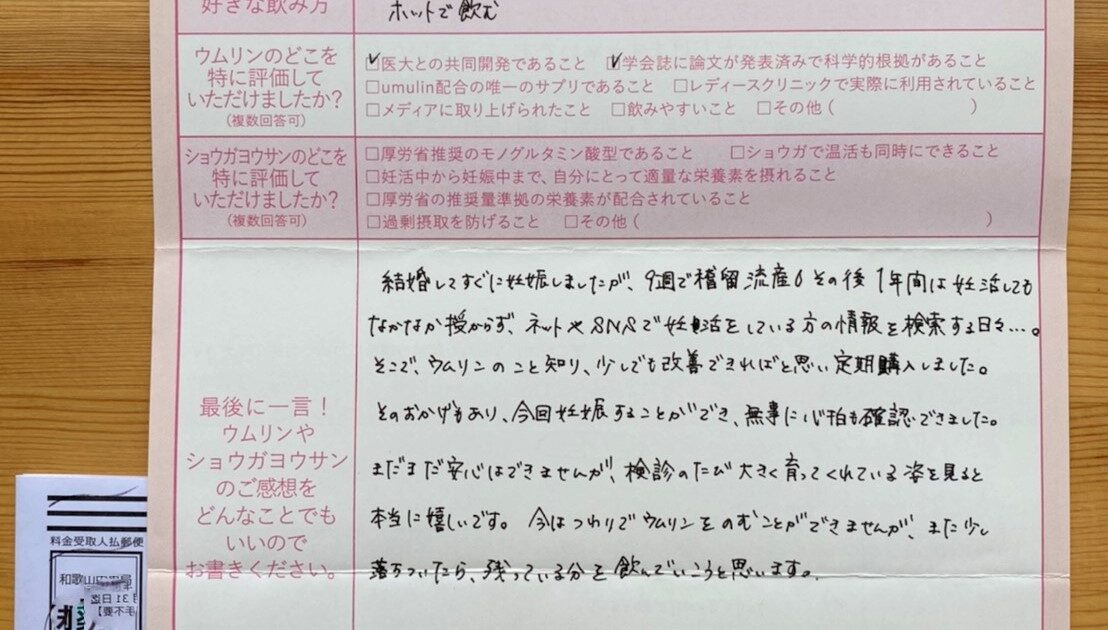 好きな飲み方
ホットで飲む
ウムリンのどこを
特に評価して
いただけましたか?
(複数回答可)
☑医大との共同開発であること ☑学会誌に論文が発表済みで科学的根拠があること
□umulin配合の唯一のサプリであること □レディースクリニックで実際に利用されていること
□メディアに取り上げられたこと □飲みやすいこと □その他( )
ショウガヨウサンのどこを
特に評価して
いただけましたか?
(複数回答可)
□厚労省推奨のモノグルタミン酸型であること □ショウガで温活も同時にできること
□妊活中から妊娠中まで、自分にとって適量な栄養素を摂れること
□厚労省の推奨量準拠の栄養素が配合されていること
□過剰摂取を防げること □その他( )
最後に一言!
ウムリンや
ショウガヨウサン
のご感想を
どんなことでも
いいので
お書きください。
結婚してすぐに妊娠しましたが、9週で稽留流産。その後1年間は妊活しても
なかなか授からず、ネットやSNSで妊活をしている方の情報を検索する日々…。
そこで、ウムリンのこと知り、少しでも改善できればと思い定期購入しました。
そのおかげもあり、今回妊娠することができ、無事に心拍も確認できました。
まだまだ安心はできませんが、検診のたび大きく育ってくれている姿を見ると
本当に嬉しいです。今はつわりでウムリンをのむことができませんが、また少し
落ちついたら、残っている分を飲んでいこうと思います。
料金受取人払郵便
和歌山
31日迄
手不要